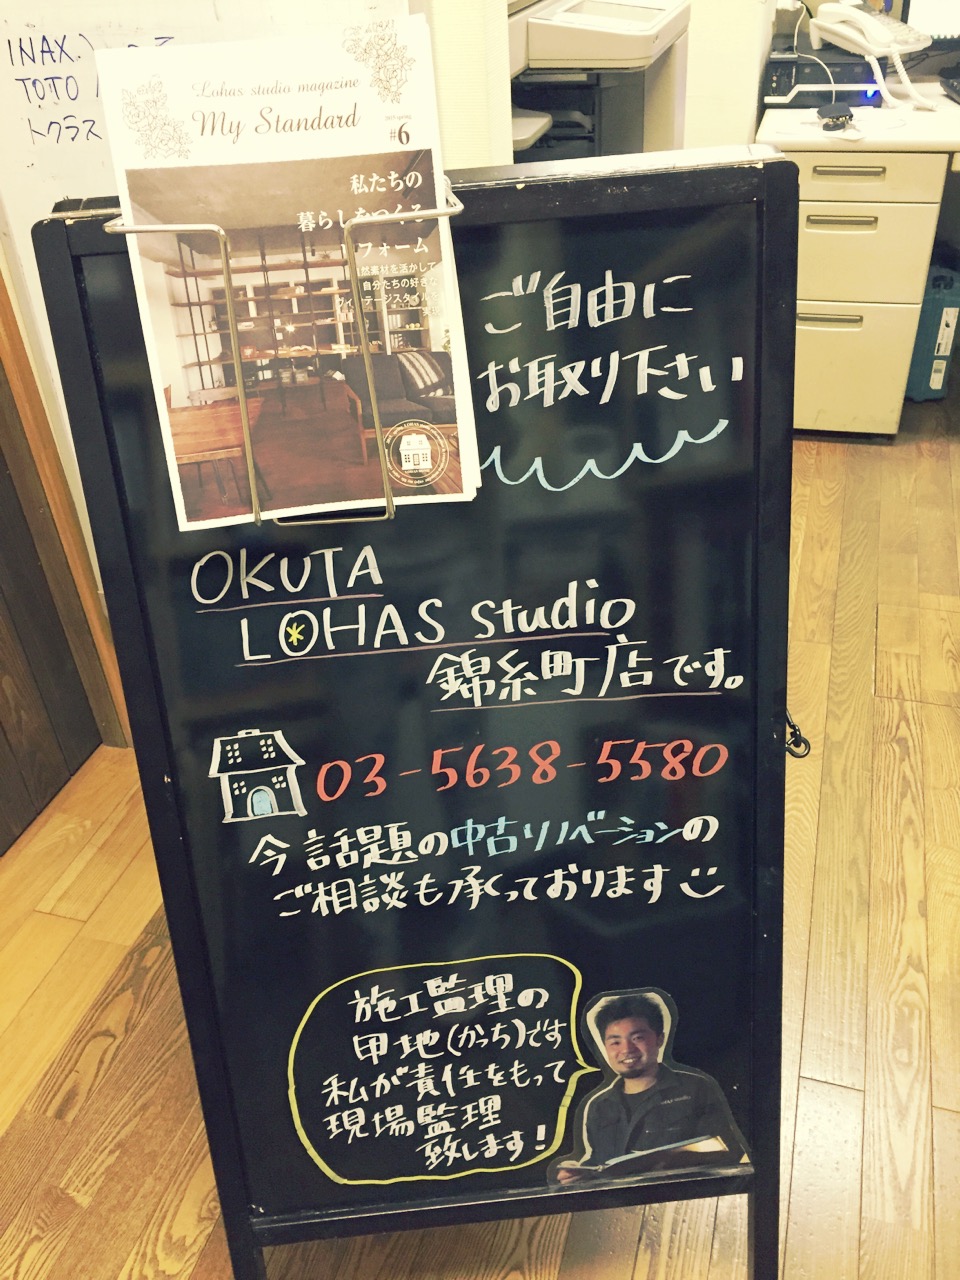 INAX.
TOTO
トクラス
Lohas studio magazine
My Standard
#6
私たちの
暮らしをつくる
リフォーム
自然素材を活かして
自分たちの好きな
ヴィンテージスタイルを
実現
ご自由に
お取り下さい
OKUTA
LOHAS studio
錦糸町店です。
03-5638-5580
今話題の中古リノベーションの
ご相談も承っております
施工監理の
甲地(かっち)です
私が責任をもって
現場監理
致します!